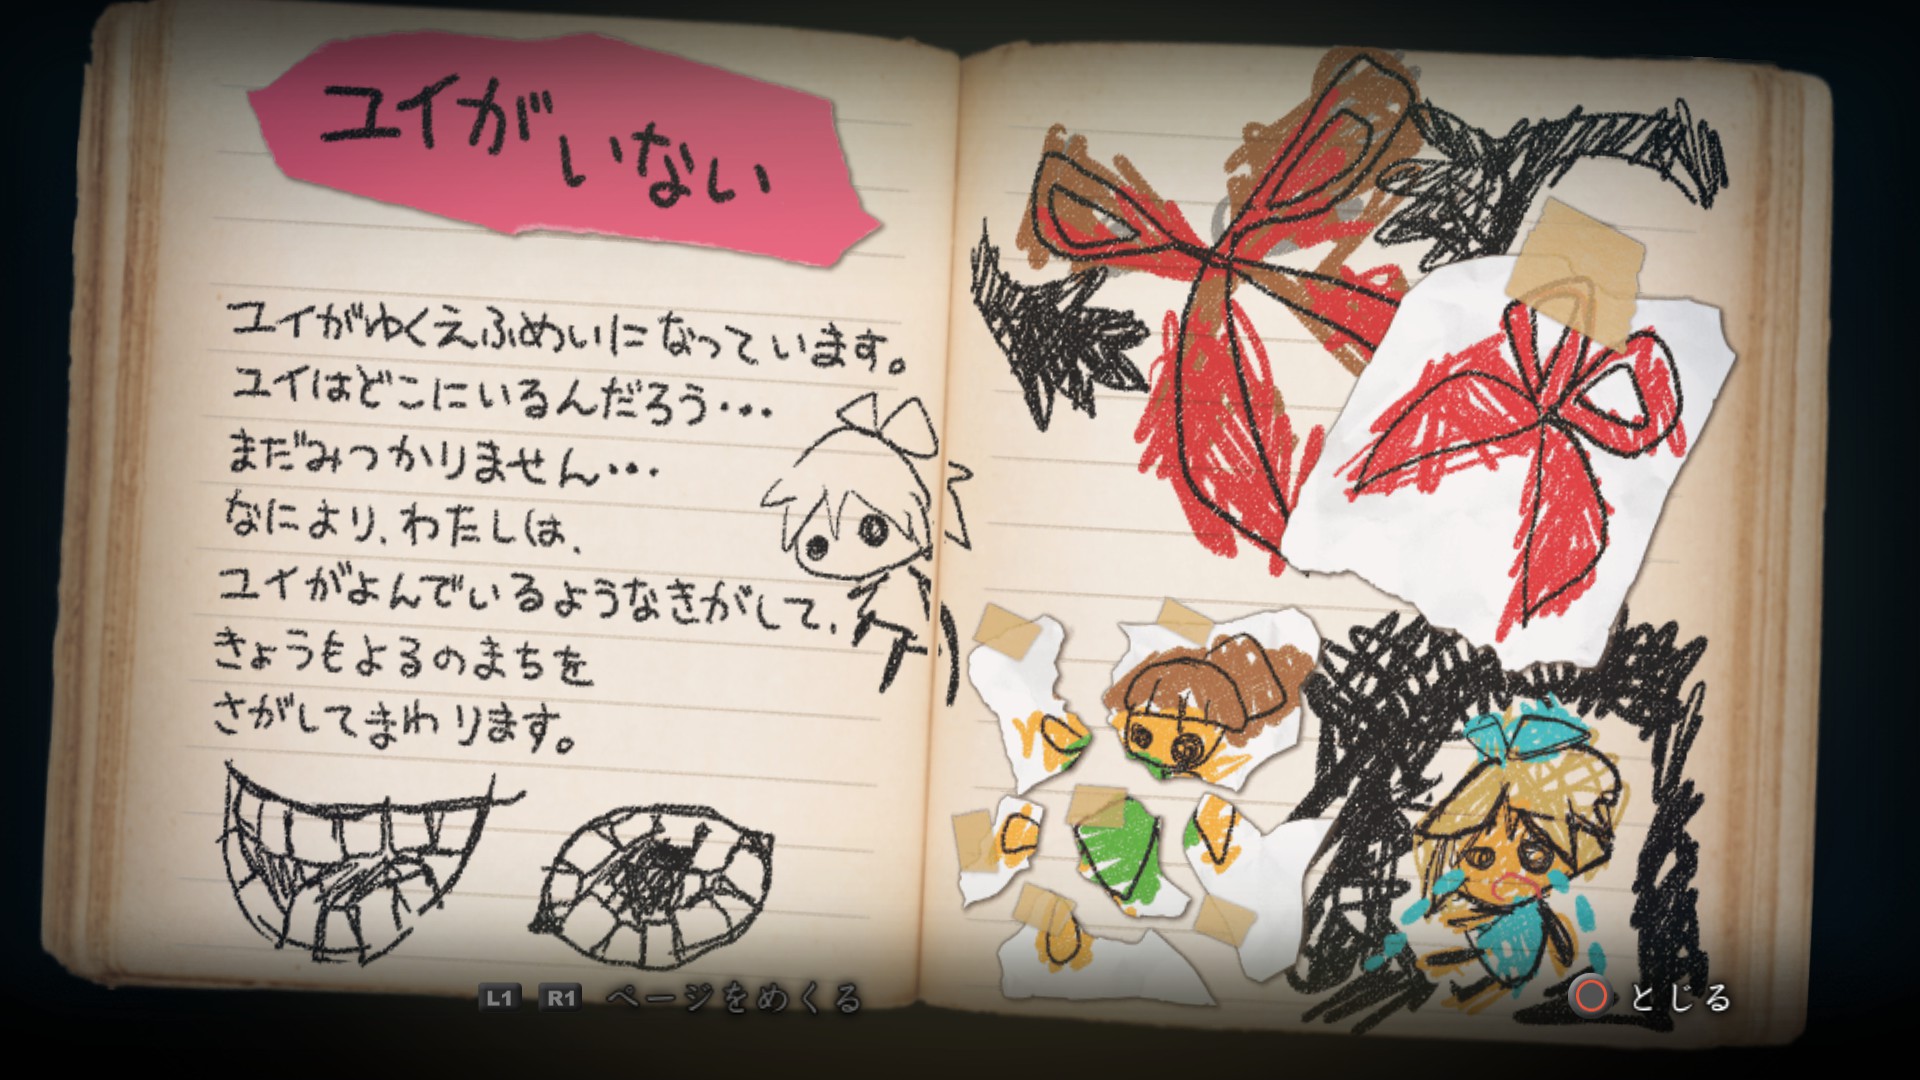 ユイがいない
ユイがゆくえふめいになっています。
ユイはどこにいるんだろう・・・
まだみつかりません・・・
なにより、わたしは、
ユイがよんでいるようなきがして、
きょうもよるのまちを
さがしてまわります。
L1 R1 ページをめくる
とじる